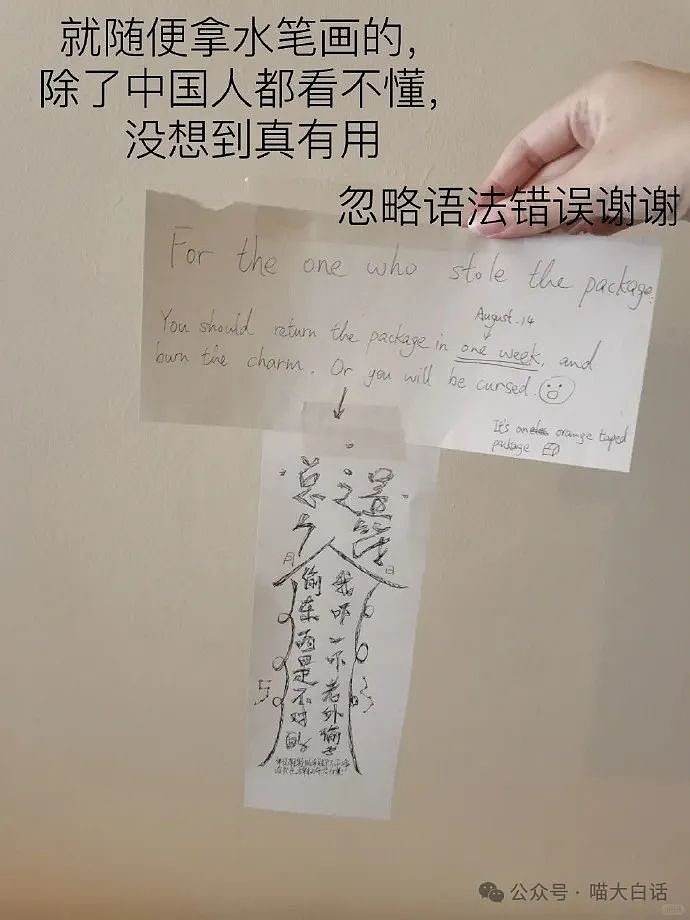 就随便拿水笔画的，
除了中国人都看不懂，
没想到真有用
忽略语法错误谢谢
For the one who stole the package.
August. 14
You should return the package in one week, and
burn the charm. Or you will be cursed.
It's an orange taped
package
总之
我吓一吓老外偷
偷东西是不对的
公众号·喵大白话